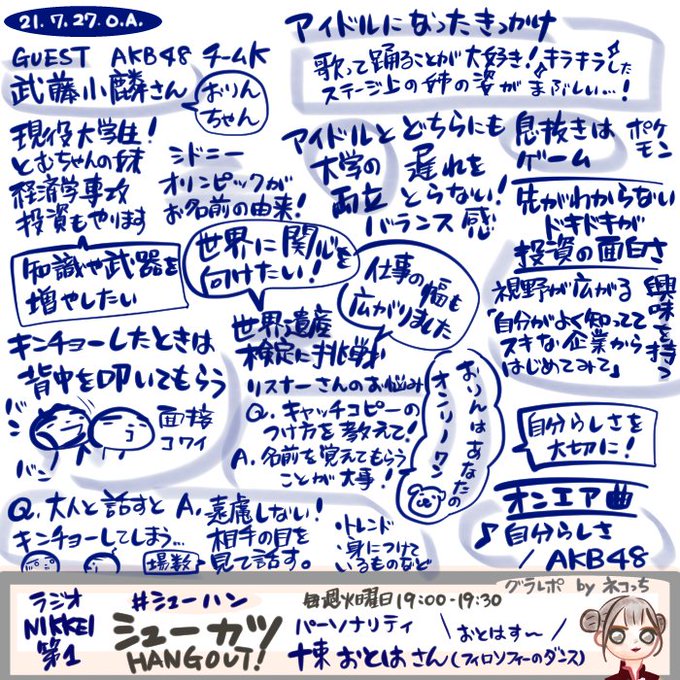 21.7.27.O.A.
GUEST AKB48 チームK
武藤小麟さん
おりん
ちゃん
現役大学生!
とむちゃんの妹
経済学専攻
投資もやります
シドニー
オリンピックが
お名前の由来!
知識や武器を
増やしたい
世界に関心を
向けたい!
世界遺産
検定に挑戦
仕事の幅も
広がりました
キンチョーしたときは
背中を叩いてもらう
バン
バン
面接
コワイ
リスナーさんのお悩み
Q.キャッチコピーの
つけ方を教えて!
A.名前を覚えてもらう
ことが大事!
おりんはあなたの
オンリーワン
Q.大人と話すと
キンチョーしてしまう…
場数
A.遠慮しない!
相手の目を
見て話す。
・トレンド
・身につけて
いるものなど
アイドルになったきっかけ
歌って踊ることが大好き!キラキラした
ステージ上の姉の姿がまぶしい…!
アイドルと
大学の
両立
どちらにも
遅れを
とらない!
バランス感
息抜きは
ゲーム
ポケ
モン
先がわからない
ドキドキが
投資の面白さ
視野が広がる
興味を持つ
「自分がよく知ってて
スキな企業から
はじめてみて」
自分らしさを
大切に!
オンエア曲
♪自分らしさ
/AKB48
グラレポ by ネコっち
ラジオ
NIKKEI
第1
#シューハン
シューカツ
HANGOUT!
毎週火曜日19:00-19:30
パーソナリティ
\おとはす〜/
十束おとはさん(フィロソフィーのダンス)